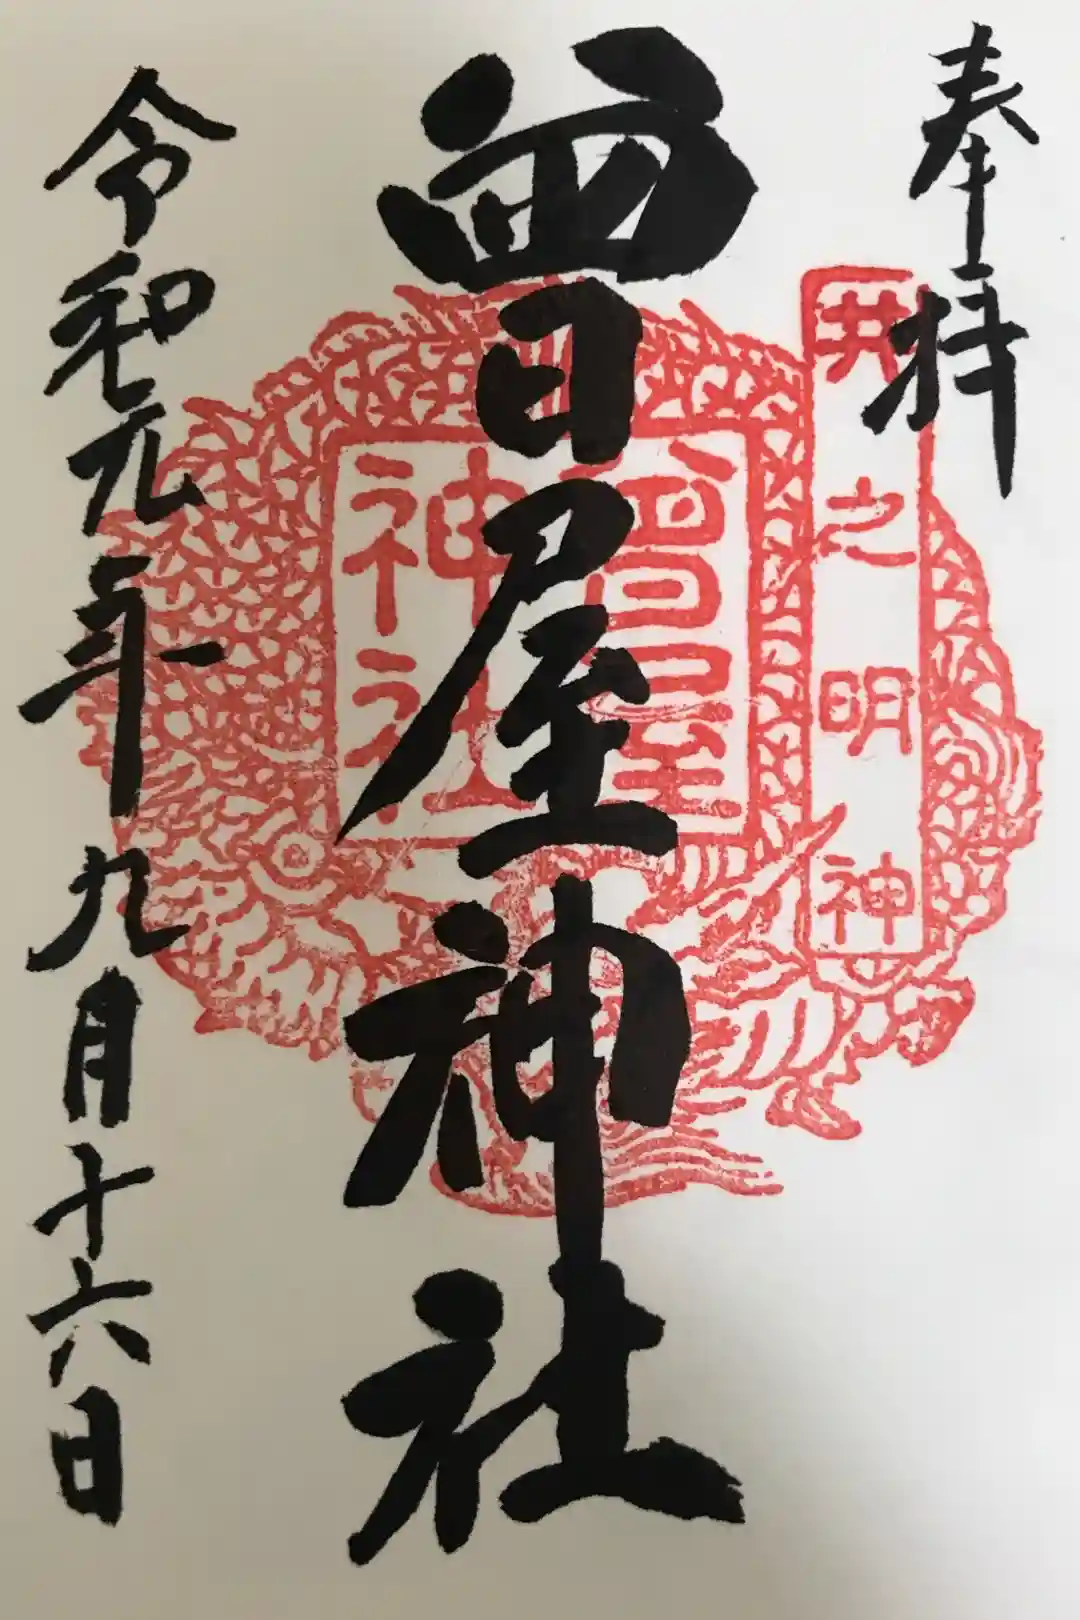 奉拝
井之明神
曾屋神社
曾屋
神社
令和元年九月十六日